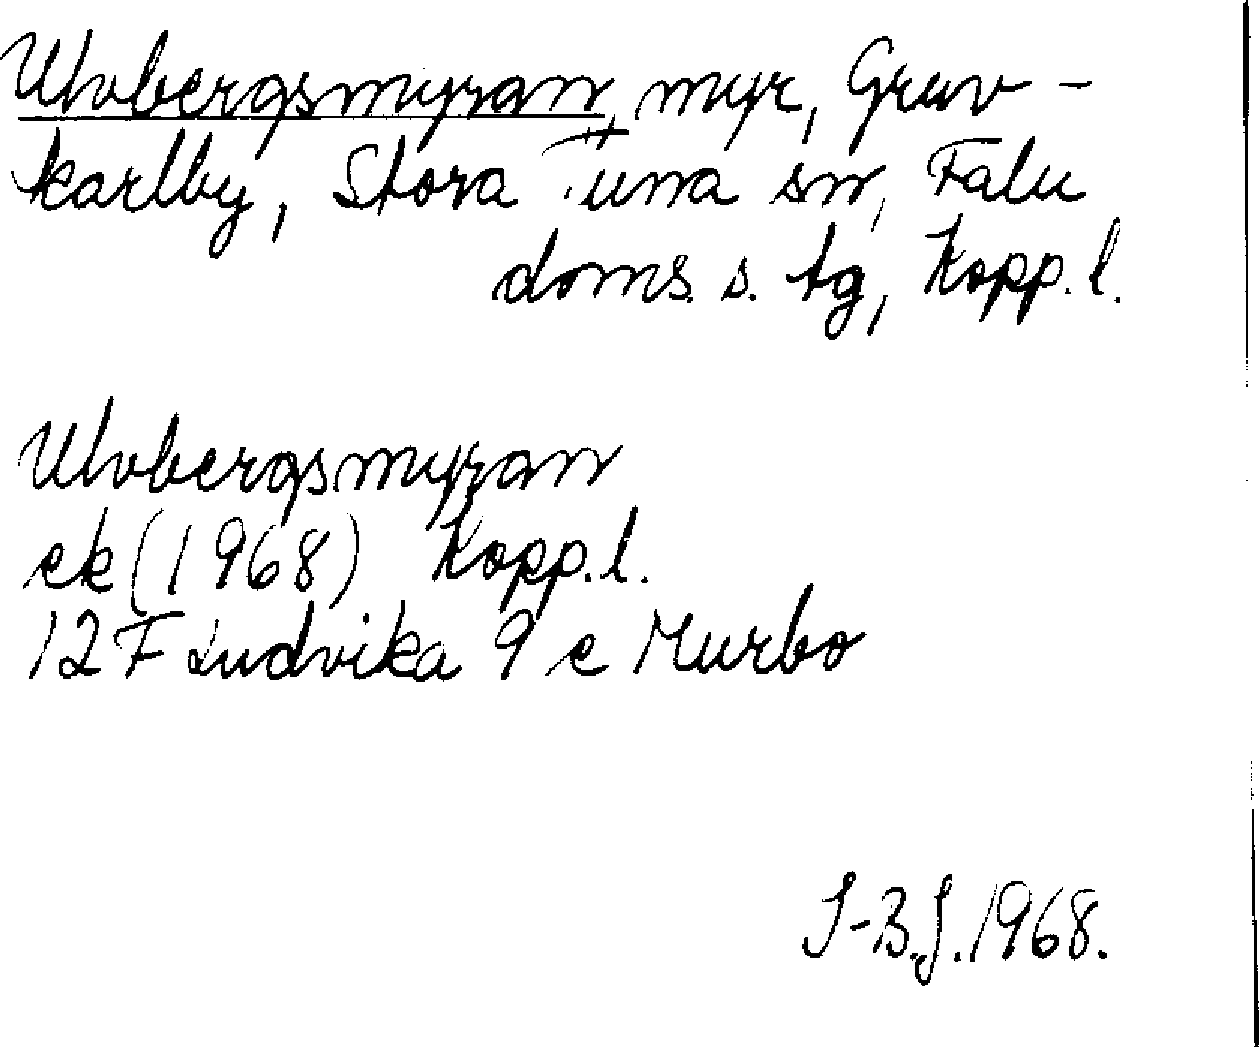 Ulvbergsmyran, myr, Gruv-
karlby, Stora Tuna sn, Falu
doms. s. tg, Kopp. l.
Ulvbergsmyran
ek (1968) Kopp. l.
12 F Ludvika 9 e Murbo
I-B.J. 1968.